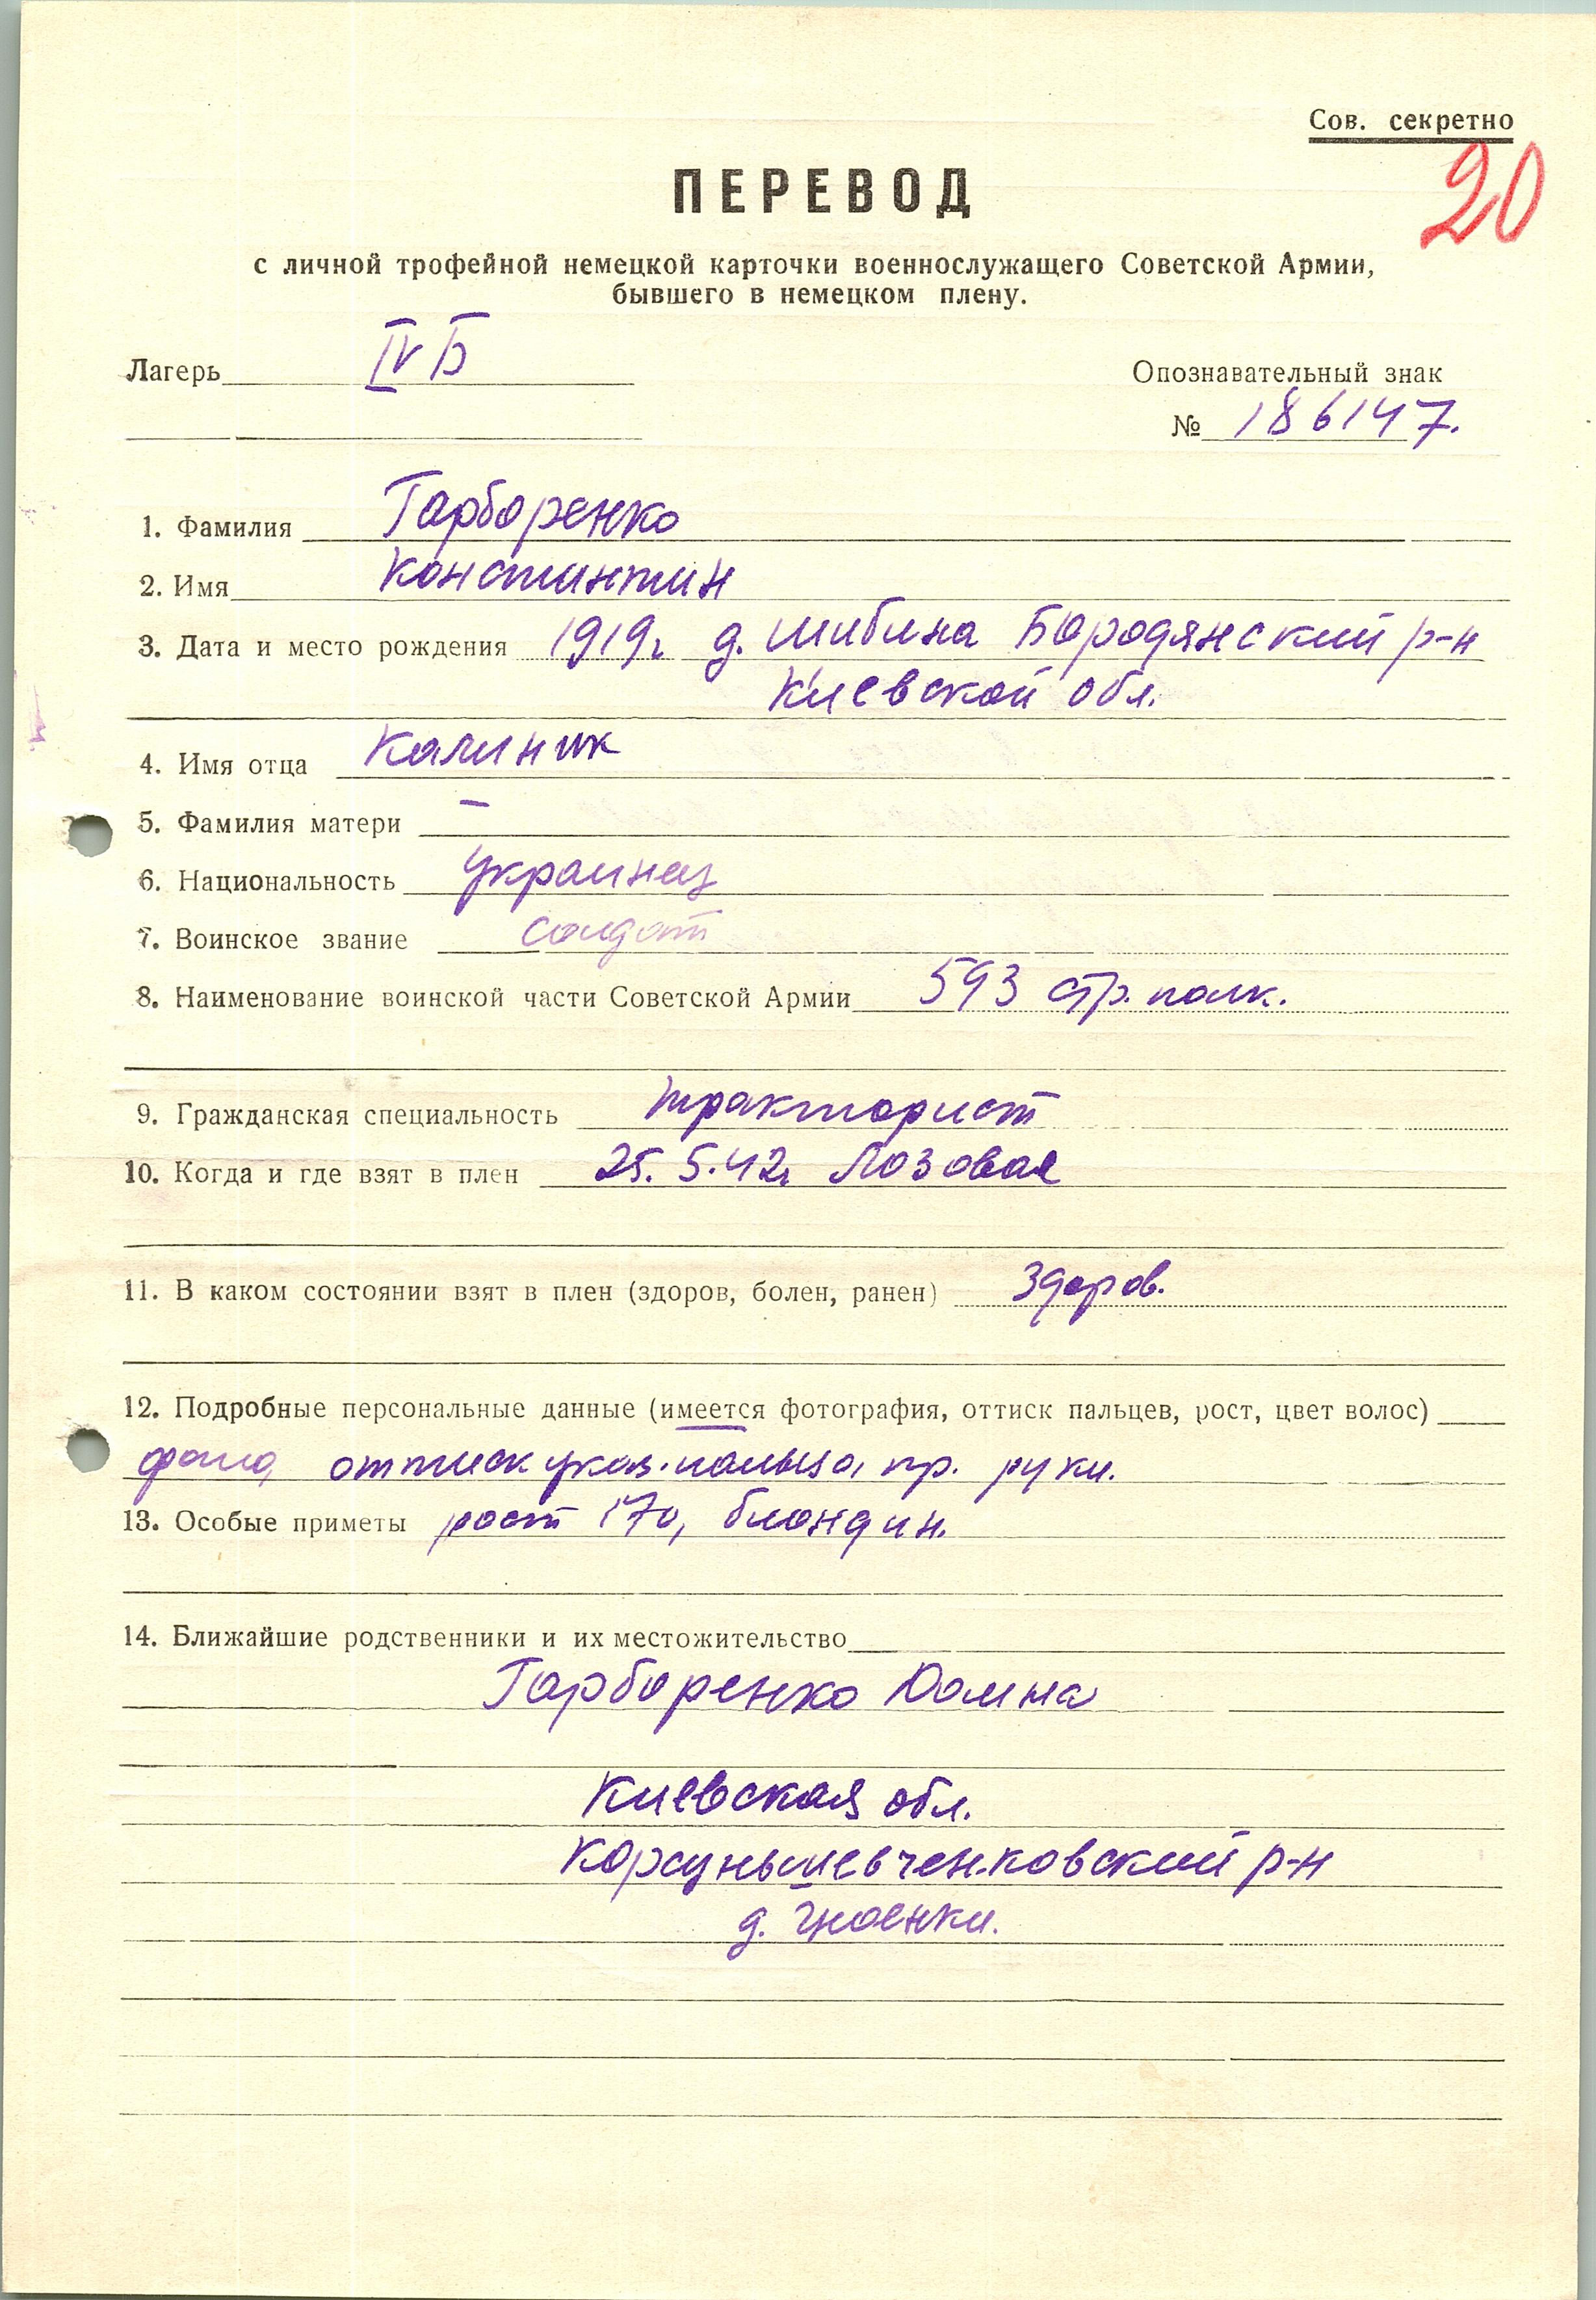 Сов. секретно
20
ПЕРЕВОД
с личной трофейной немецкой карточки военнослужащего Советской Армии,
бывшего в немецком плену.
Лагерь IV Б
Опознавательный знак
№ 186147.
1. Фамилия Гарборенко
2. Имя Константин
3. Дата и место рождения 1919г д. Шибина Бородянский р-н
Киевской обл.
4. Имя отца Калиник
5. Фамилия матери —
6. Национальность Украинец
7. Воинское звание солдат
8. Наименование воинской части Советской Армии 593 стр. полк.
9. Гражданская специальность тракторист
10. Когда и где взят в плен 25. 5. 42г Лозовая
11. В каком состоянии взят в плен (здоров, болен, ранен) Здоров.
12. Подробные персональные данные (имеется фотография, оттиск пальцев, рост, цвет волос)
фото, оттиск указ. пальца пр. руки.
13. Особые приметы рост 170, блондин.
14. Ближайшие родственники и их местожительство
Гарборенко Домна
Киевская обл.
Корсуньшевченковский р-н
д.